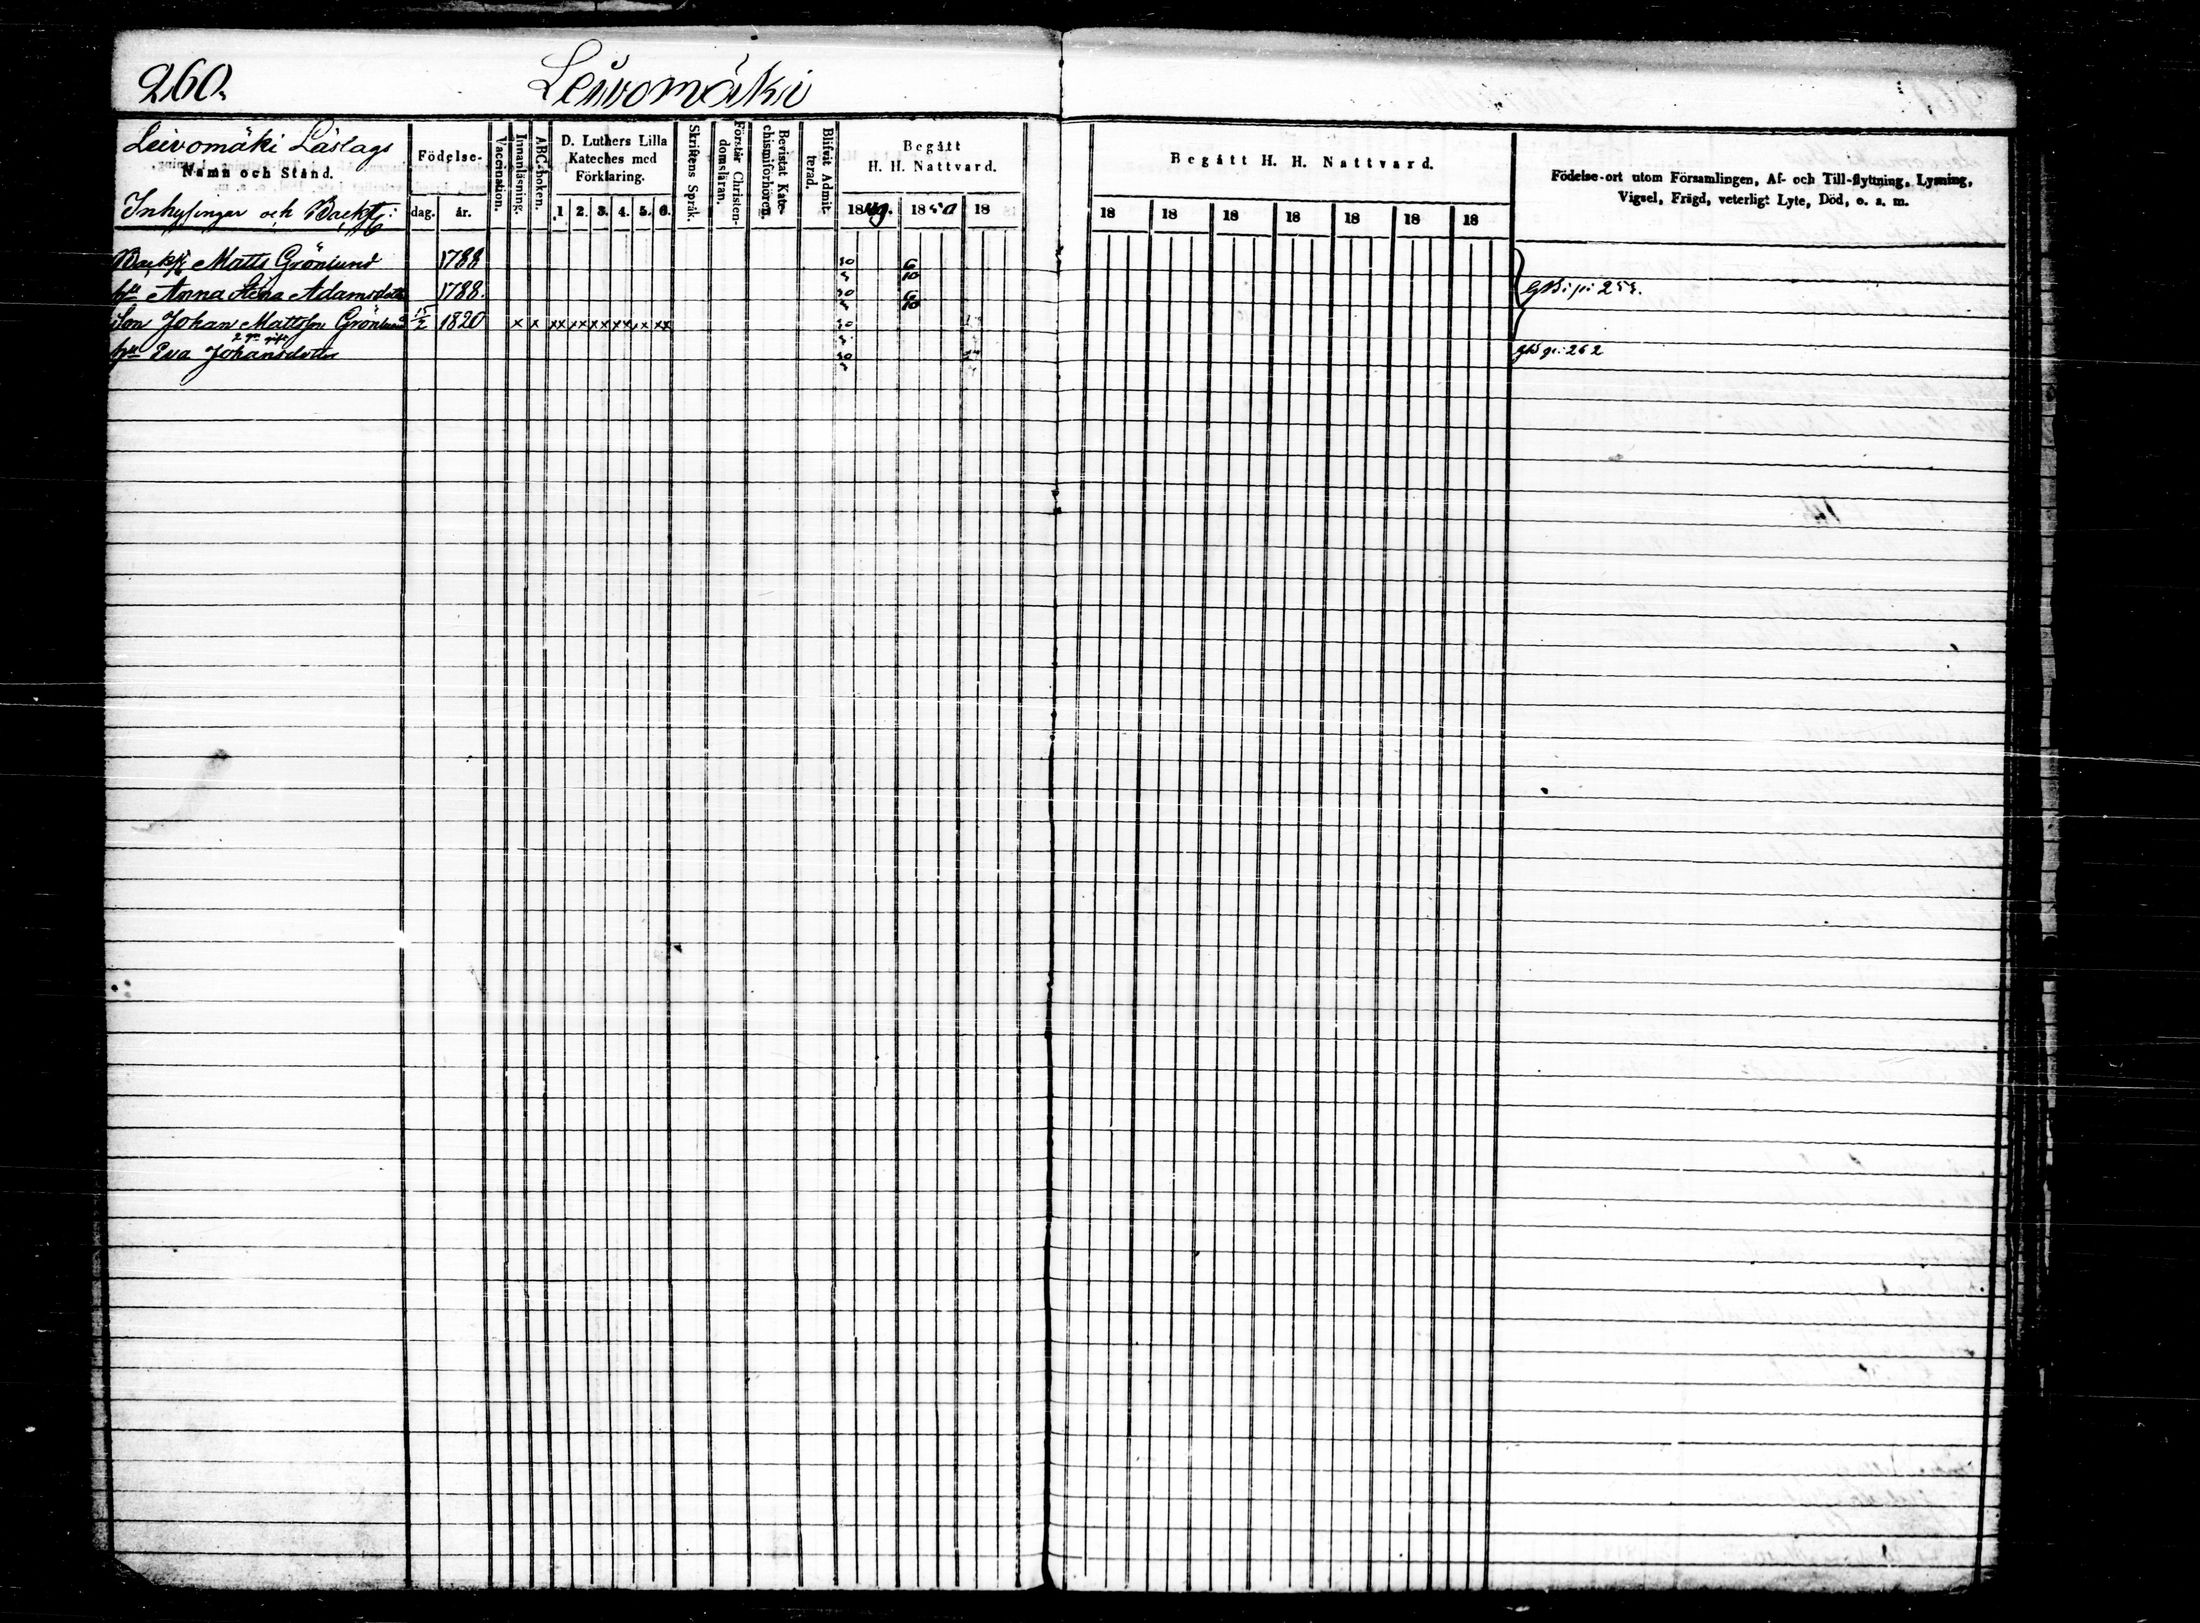 260.
Leivomäki
Leivomäki Läslags
Namn och Stånd.
Inhysingar och Backst:
Födelse-
dag. år.
Vaccination.
Innanläsning.
ABC-boken.
D. Luthers Lilla
Kateches med
Förklaring.
1 2. 3. 4. 5. 6.
Skriftens Språk.
Förstår Christen-
domsläran.
Bevistat Kate-
chismiförhören.
Blifvit Admit-
terad.
Begått
H. H. Nattvard.
1849. 1850 18
Begått H. H. Nattvard.
18 18 18 18 18 18 18
Födelse-ort utom Församlingen, Af- och Till-flyttning, Lysning,
Vigsel, Frägd, veterligt Lyte, Död, o. s. m.
Matts Grönlund 1788
hu Anna Stena Adamsdotter 1788.
Son Johan Mattsson Grönlund 15/2 1820 x x xx xx xx xx xx
hu Eva Johansdotter 262